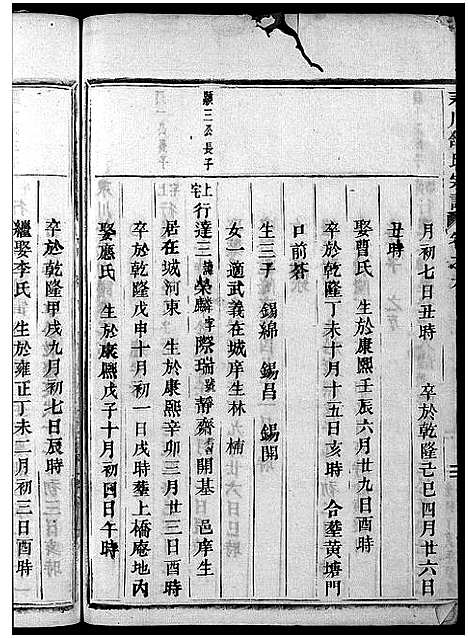 月初七日丑時　卒於乾隆己巳四月廿六日
丑時
娶曹氏　生於康熙壬辰六月廿九日酉時
卒於乾隆丁未十月十五日亥時　合塟黃塘門
口前莟
生三子　錫綿　錫昌　錫開
女一適武義在城庠生林楠
顯三公長子
上宅行達三諱榮麟字際瑞號靜齋開基　邑庠生
居在城河東　生於康熙辛卯三月廿三日酉時
卒於乾隆戊申十月初一日戌時塟上橋庵地內
娶應氏　生於康熙戊子十月初四日午時
卒於乾隆甲戌九月初七日辰時
繼娶李氏　生於雍正丁未二月初三日酉時